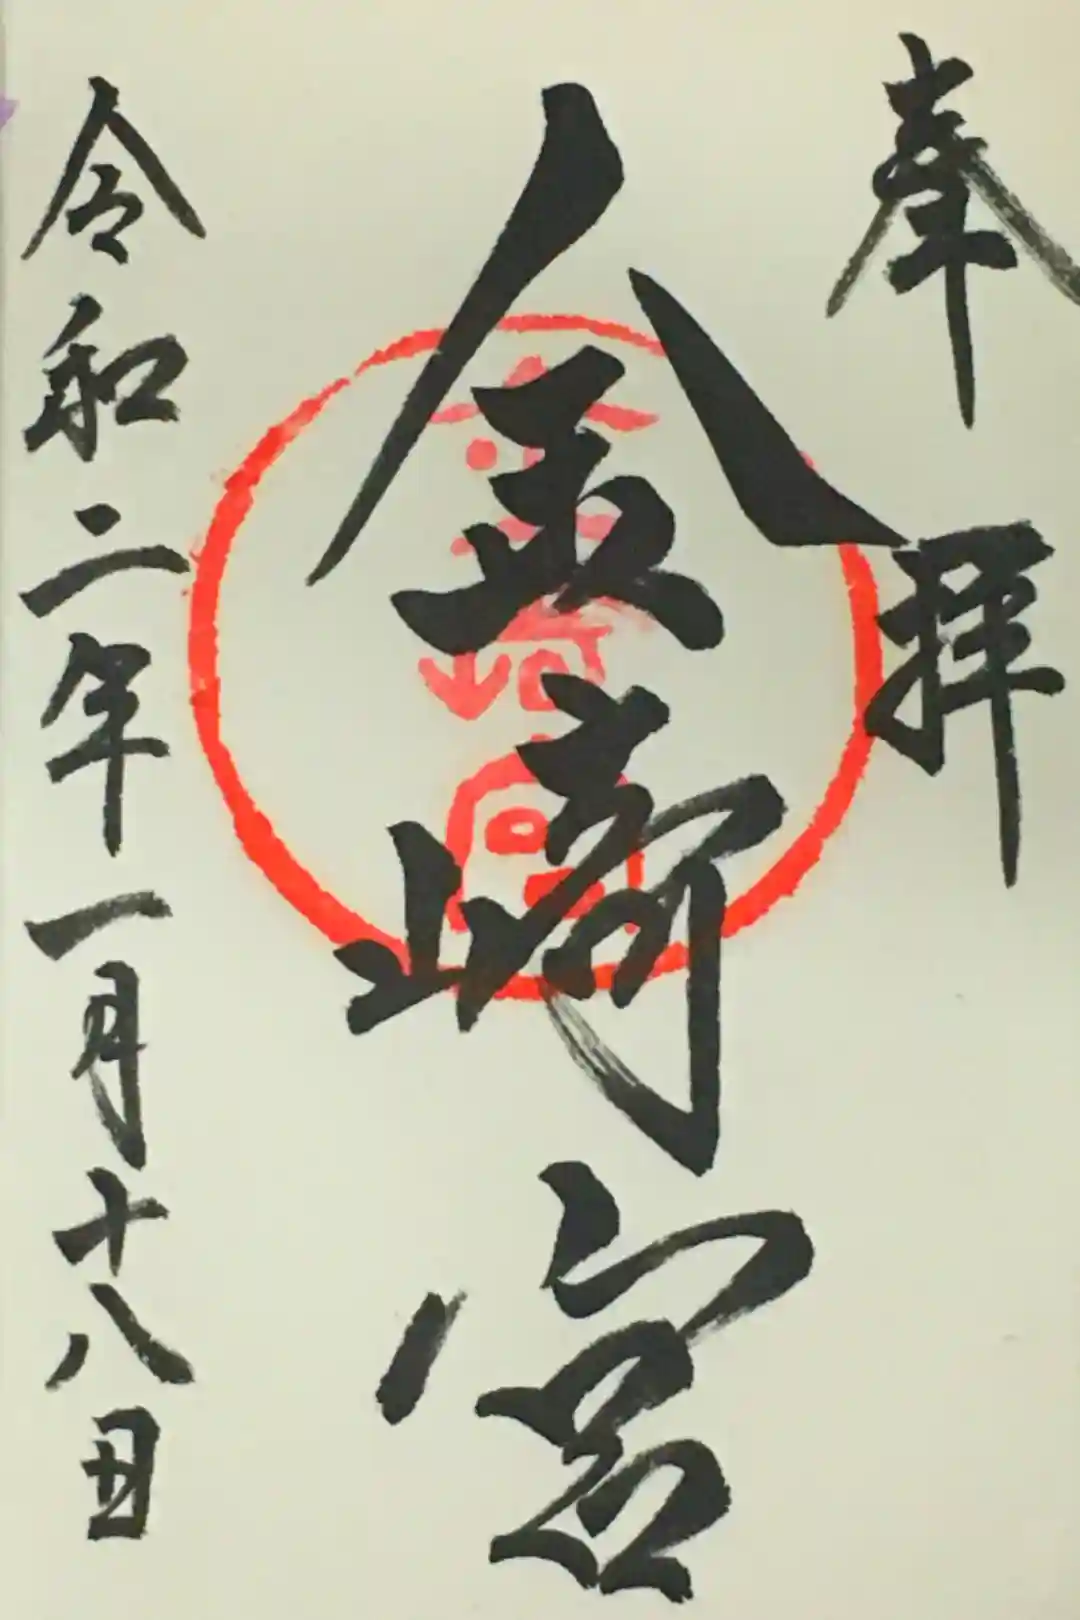 奉拝
金崎宮
金崎宮
令和二年一月十八日